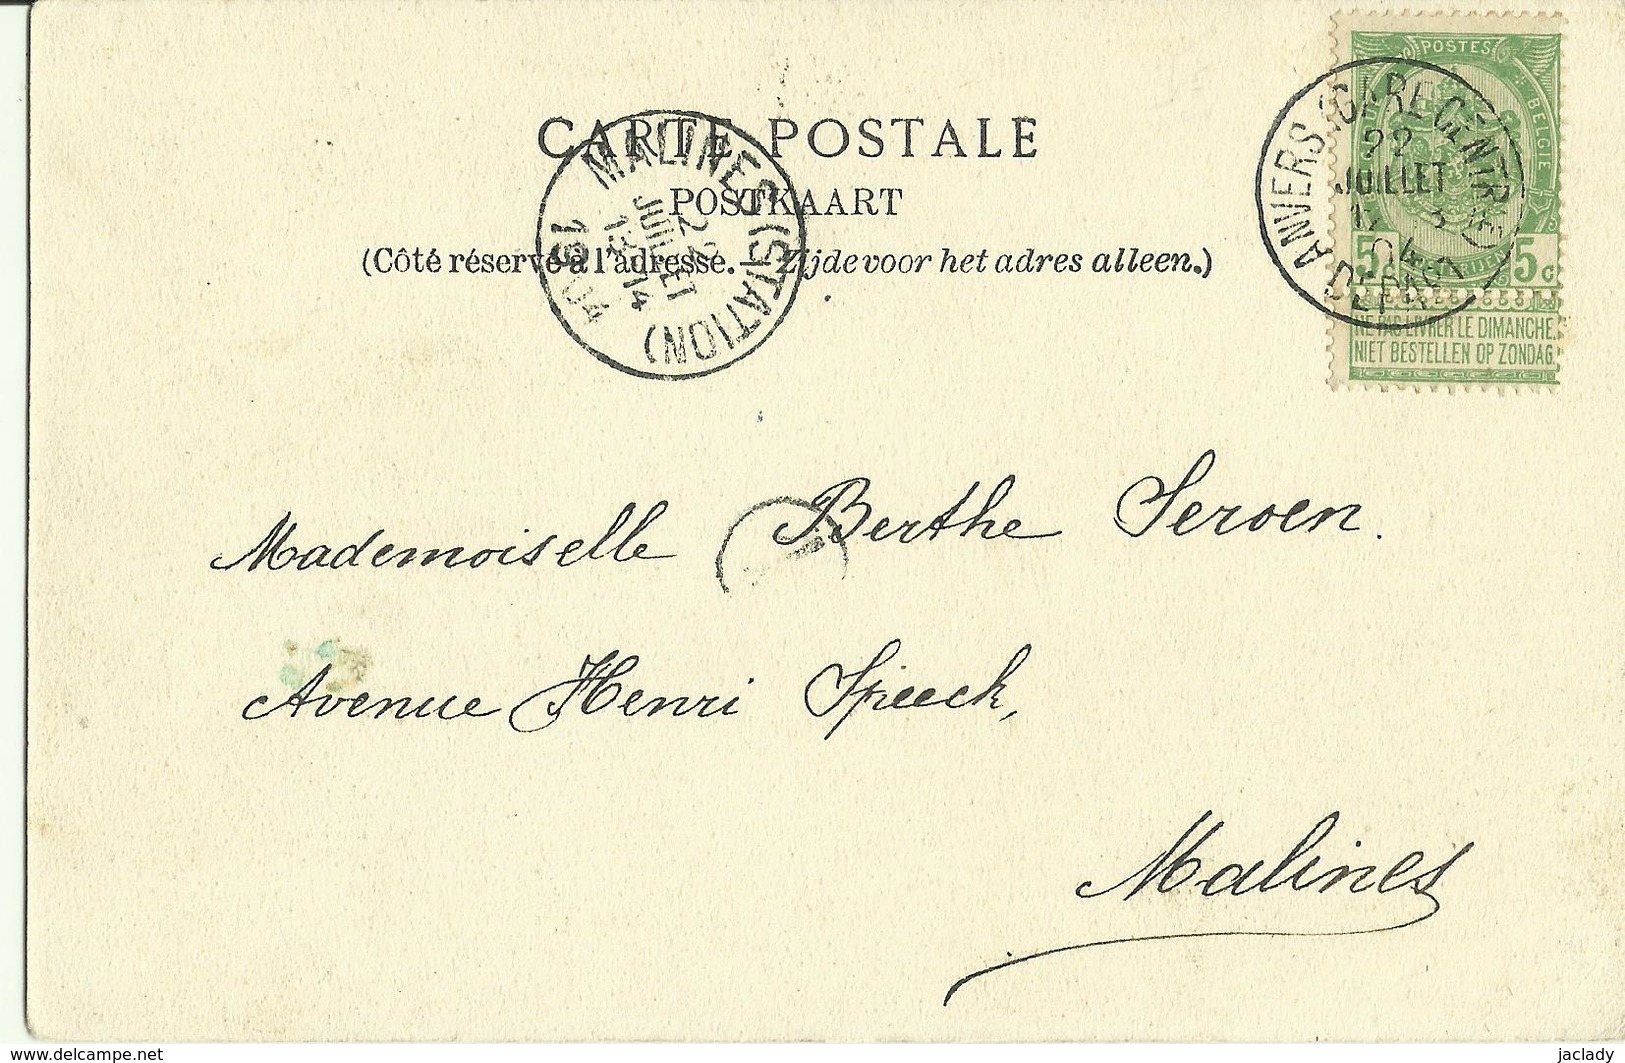 CARTE POSTALE
POSTKAART
(Côté réservé à l'adresse. — Zijde voor het adres alleen.)
MALINES (STATION)
22
JUILLET
1904
POSTES
BELGIE
5 5c
NE PAS LIVRER LE DIMANCHE.
NIET BESTELLEN OP ZONDAG.
ANVERS (GARE CENTRALE)
22
JUILLET
04
DÉPART
Mademoiselle Berthe Seroen.
Avenue Henri Speeck,
Malines
www.delcampe.net
jaclady